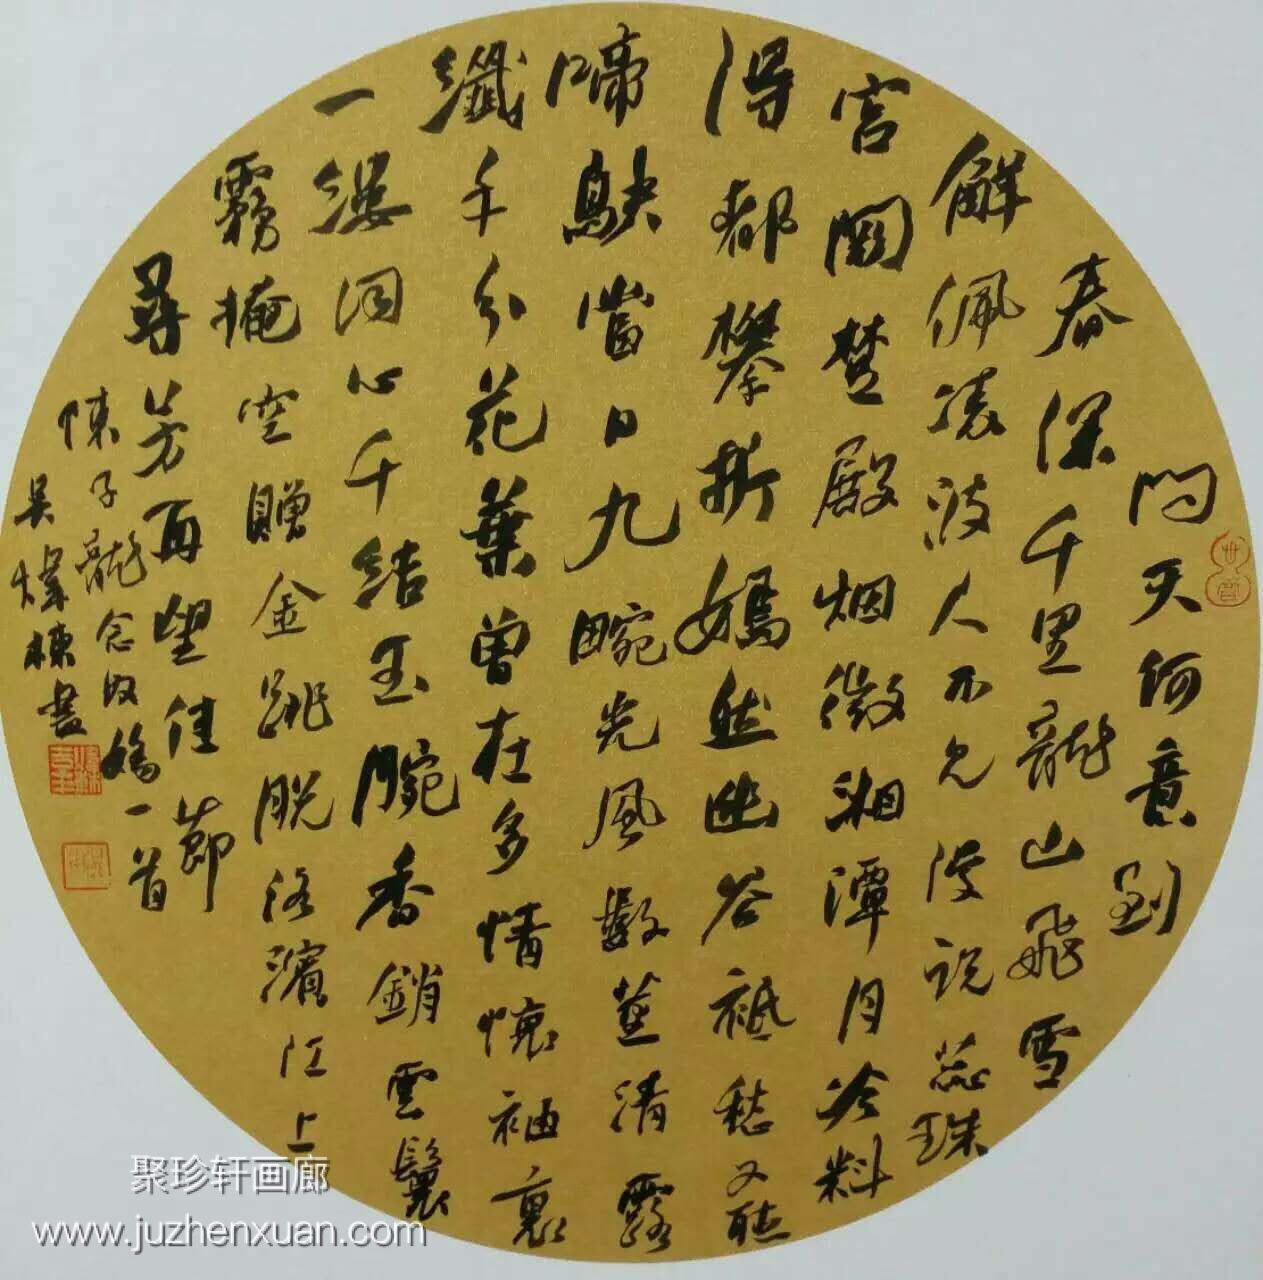 問天何意到
春深千里龍山飛雪
解佩凌波人不見漫說蕊珠
宮闕楚殿烟微湘潭月冷料
得都攀折嫣然幽谷祗愁又聽
啼鴃當日九畹光風數莖清露
纖手分花葉曾在多情懷袖裏
一縷同心千結玉腕香銷雲鬟
霧掩空贈金跳脫洛濱江上
尋芳再望佳節
陳子龍念奴嬌一首
吳燁棟書
聚珍轩画廊
www.juzhenxuan.com